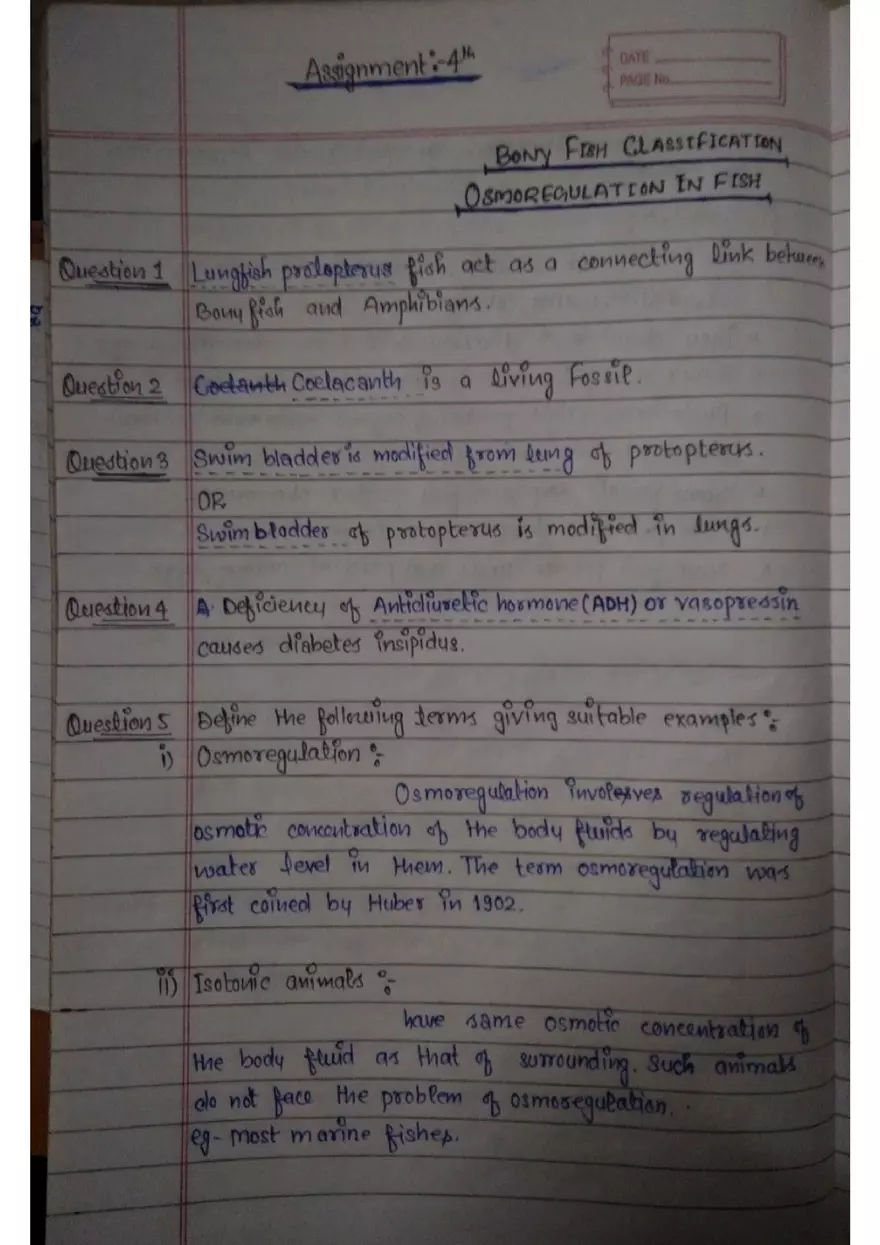 Assignment:-4th
DATE
PAGE No.
BONY FISH CLASSIFICATION
OSMOREGULATION IN FISH
Question 1 Lungfish protopterus fish act as a connecting link between
Bony fish and Amphibians.
Question 2 Coelanth Coelacanth is a living Fossil.
Question 3 Swim bladder is modified from lung of protopterus.
OR
Swim bladder of protopterus is modified in lungs.
Question 4 A. Deficiency of Antidiuretic hormone (ADH) or vasopressin
causes diabetes insipidus.
Question 5 Define the following terms giving suitable examples:-
i) Osmoregulation :-
Osmoregulation involves regulation of
osmotic concentration of the body fluids by regulating
water level in them. The term osmoregulation was
first coined by Huber in 1902.
ii) Isotonic animals :-
have same osmotic concentration of
the body fluid as that of surrounding. Such animals
do not face the problem of osmoregulation.
eg- most marine fishes.